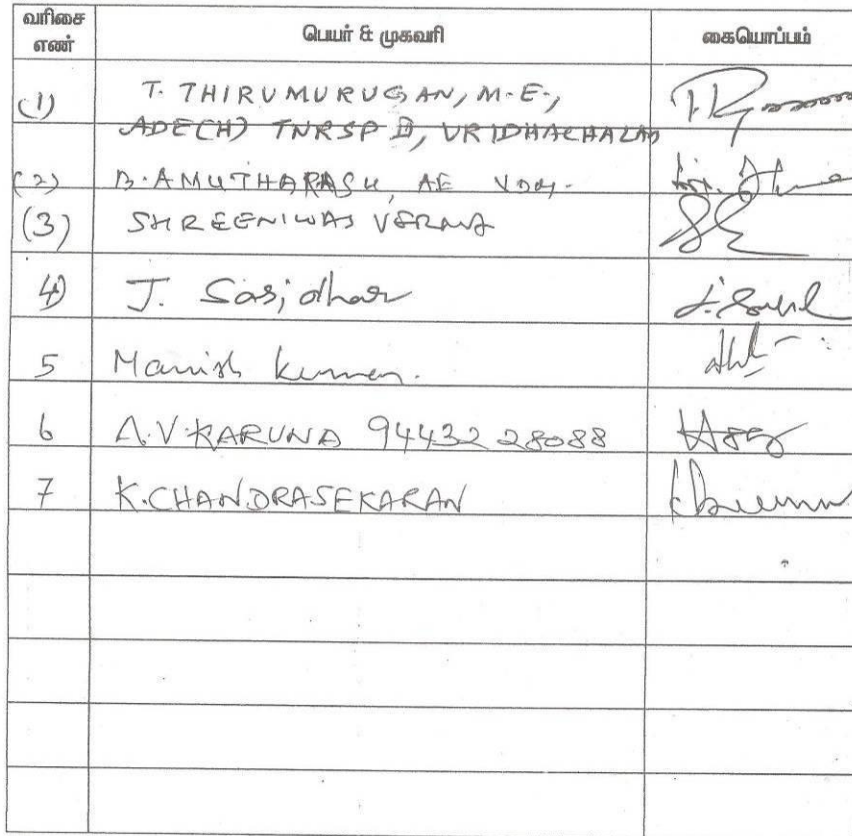 வரிசை எண் பெயர் & முகவரி கையொப்பம்
(1) T. THIRUMURUGAN, M.E.,
ADE(H) TNRSP II, VRIDHACHALAM
(2) B. AMUTHARASU, AE VDM.
(3) SHREENIWAS VERMA
4) J. Sasidhar
5 Manish kumar.
6 A.V.KARUNA 94432 28088
7 K.CHANDRASEKARAN